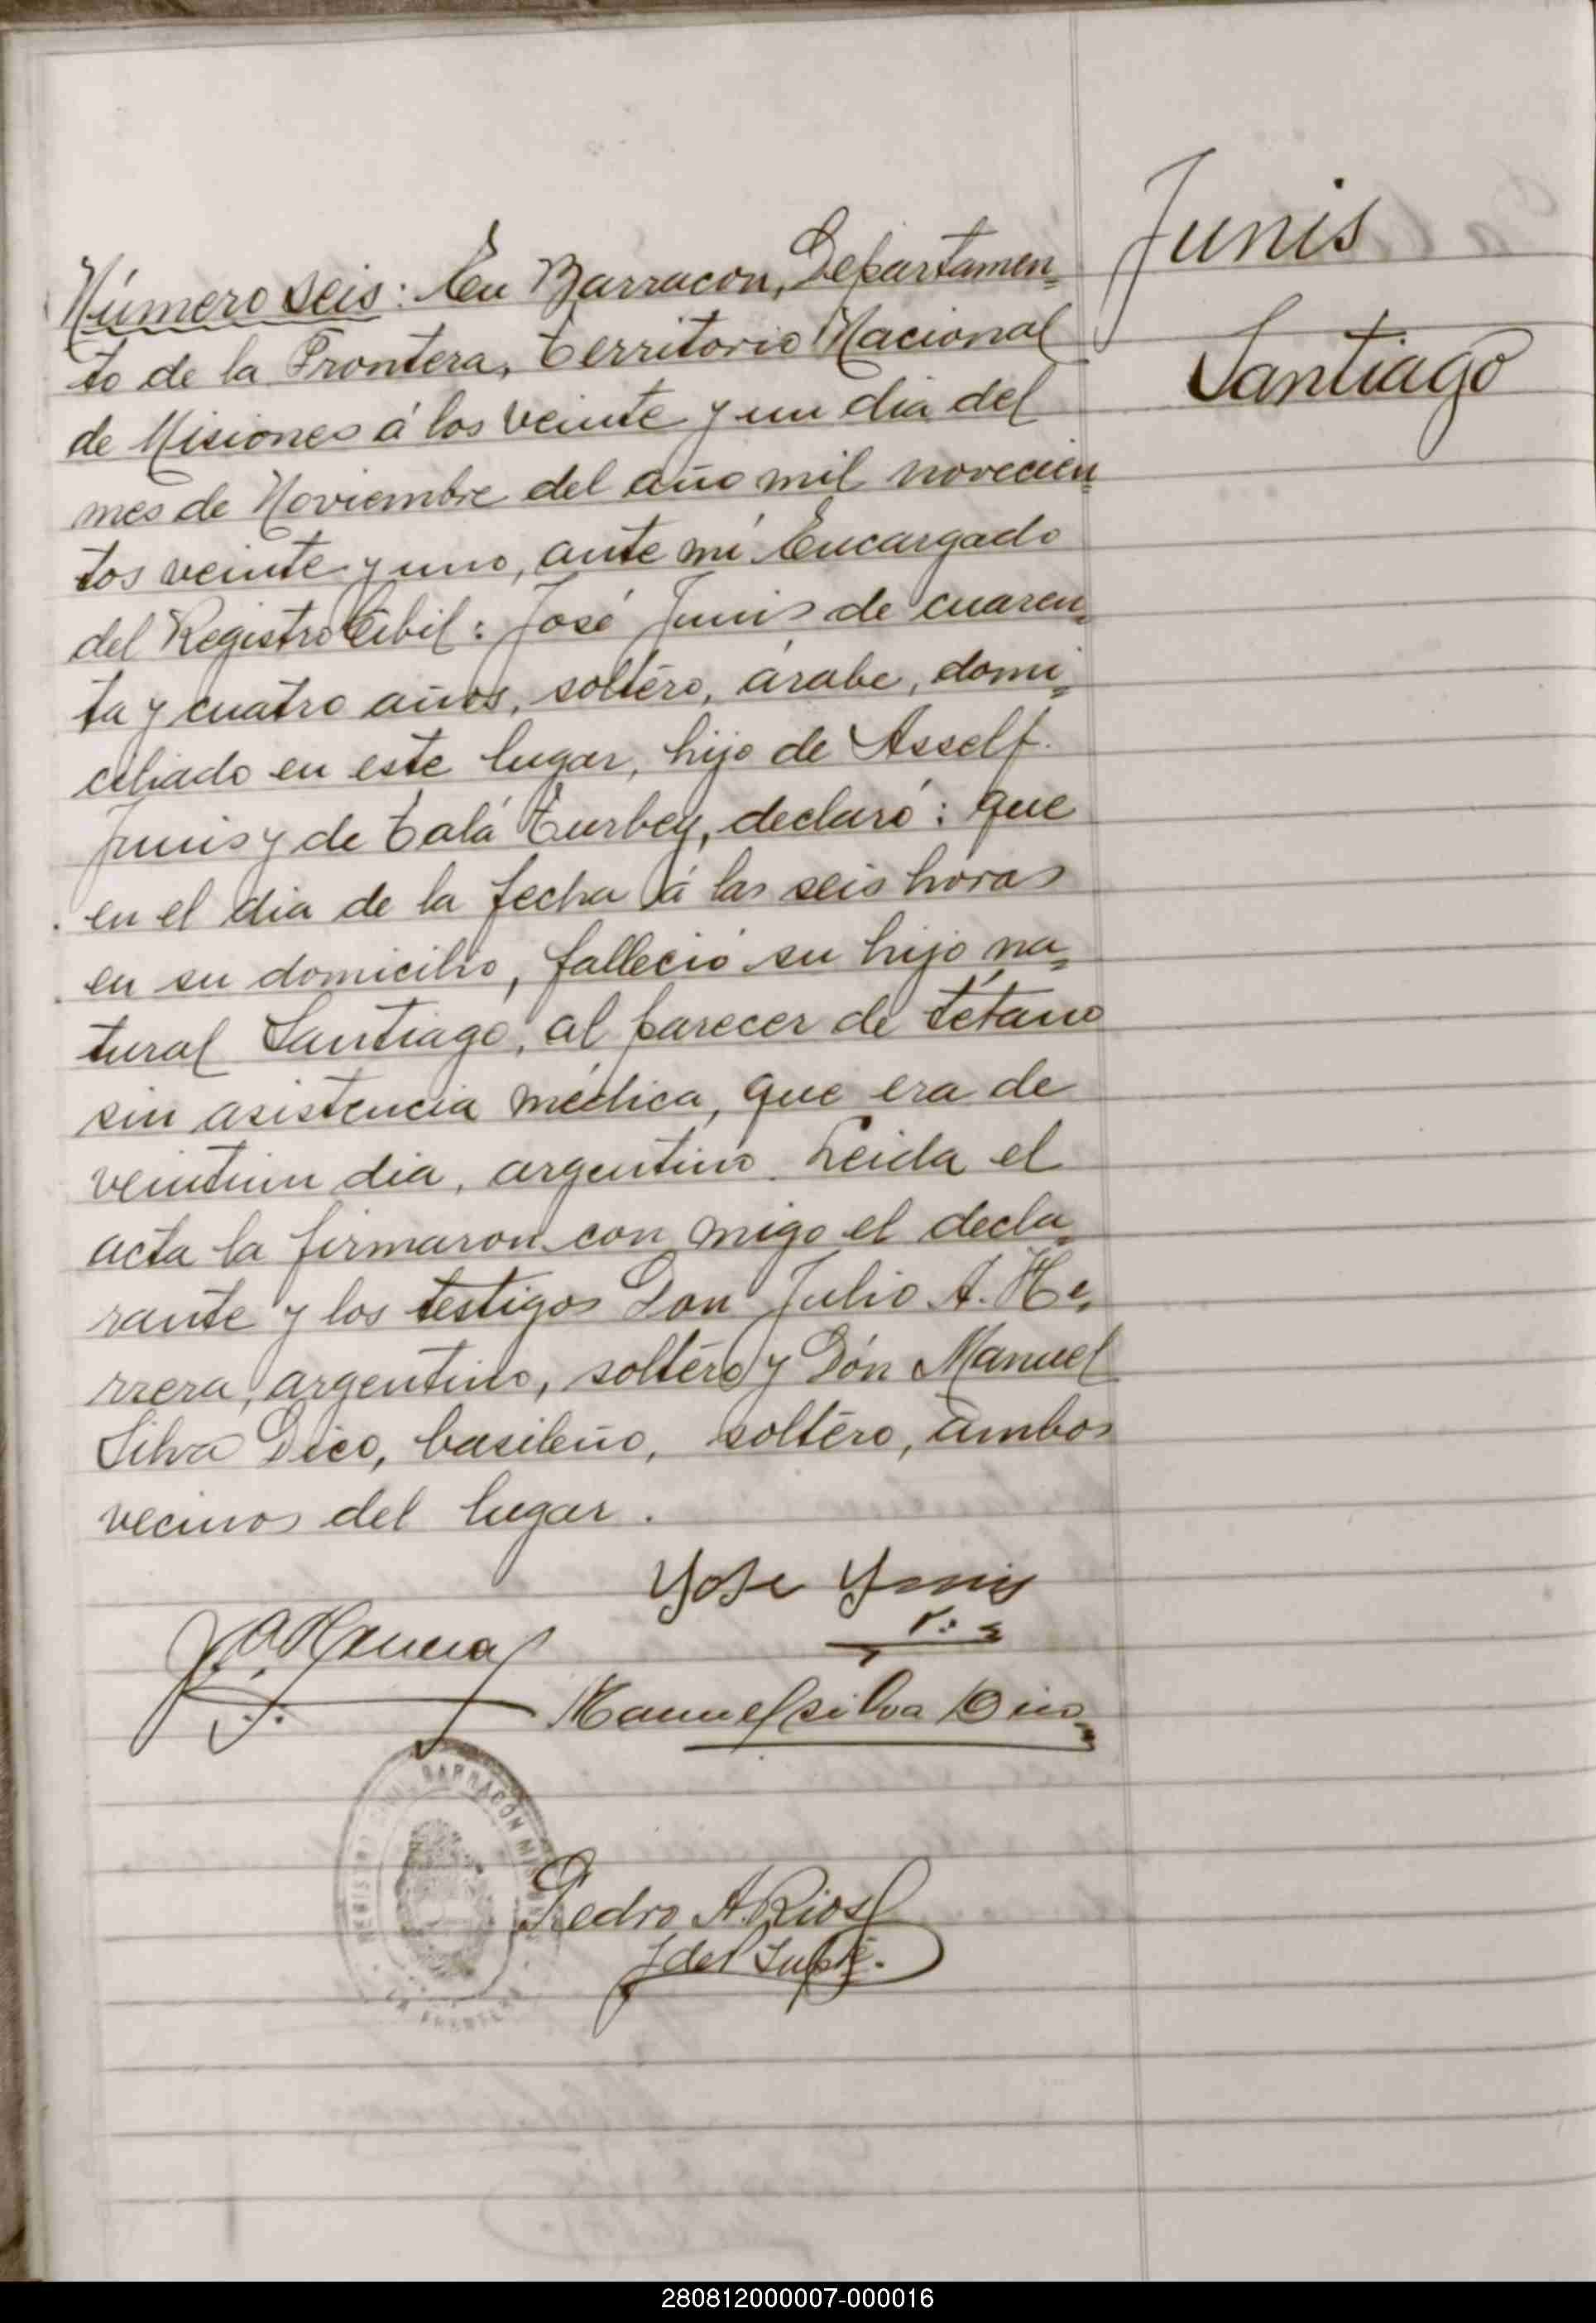 Junis
Santiago
Número seis: En Barracon, Departamen=
to de la Frontera, Territorio Nacional
de Misiones á los veinte y un dia del
mes de Noviembre del año mil novecien=
tos veinte y uno, ante mi Encargado
del Registro Cibil: José Junis de cuaren=
ta y cuatro años, soltéro, árabe, domi=
ciliado en este lugar, hijo de Asself
Junis y de Talá Turbey, declaró: que
en el dia de la fecha á las seis horas
en su domicilio, falleció su hijo na=
tural Santiago, al parecer de tétano
sin asistencia médica, que era de
veintiun dia, argentino. Leida el
acta la firmaron con migo el decla=
rante y los testigos Don Julio A. He=
rrera, argentino, soltéro y Dón Manuel
Silva Dico, basileño, soltéro, ambos
vecinos del lugar.
Yose Yunis
Manuel silva Dico
REGISTRO CIVIL BARRACÓN MISIONES
LA FRONTERA
Pedro A. Rios
J del Supte.
280812000007-000016